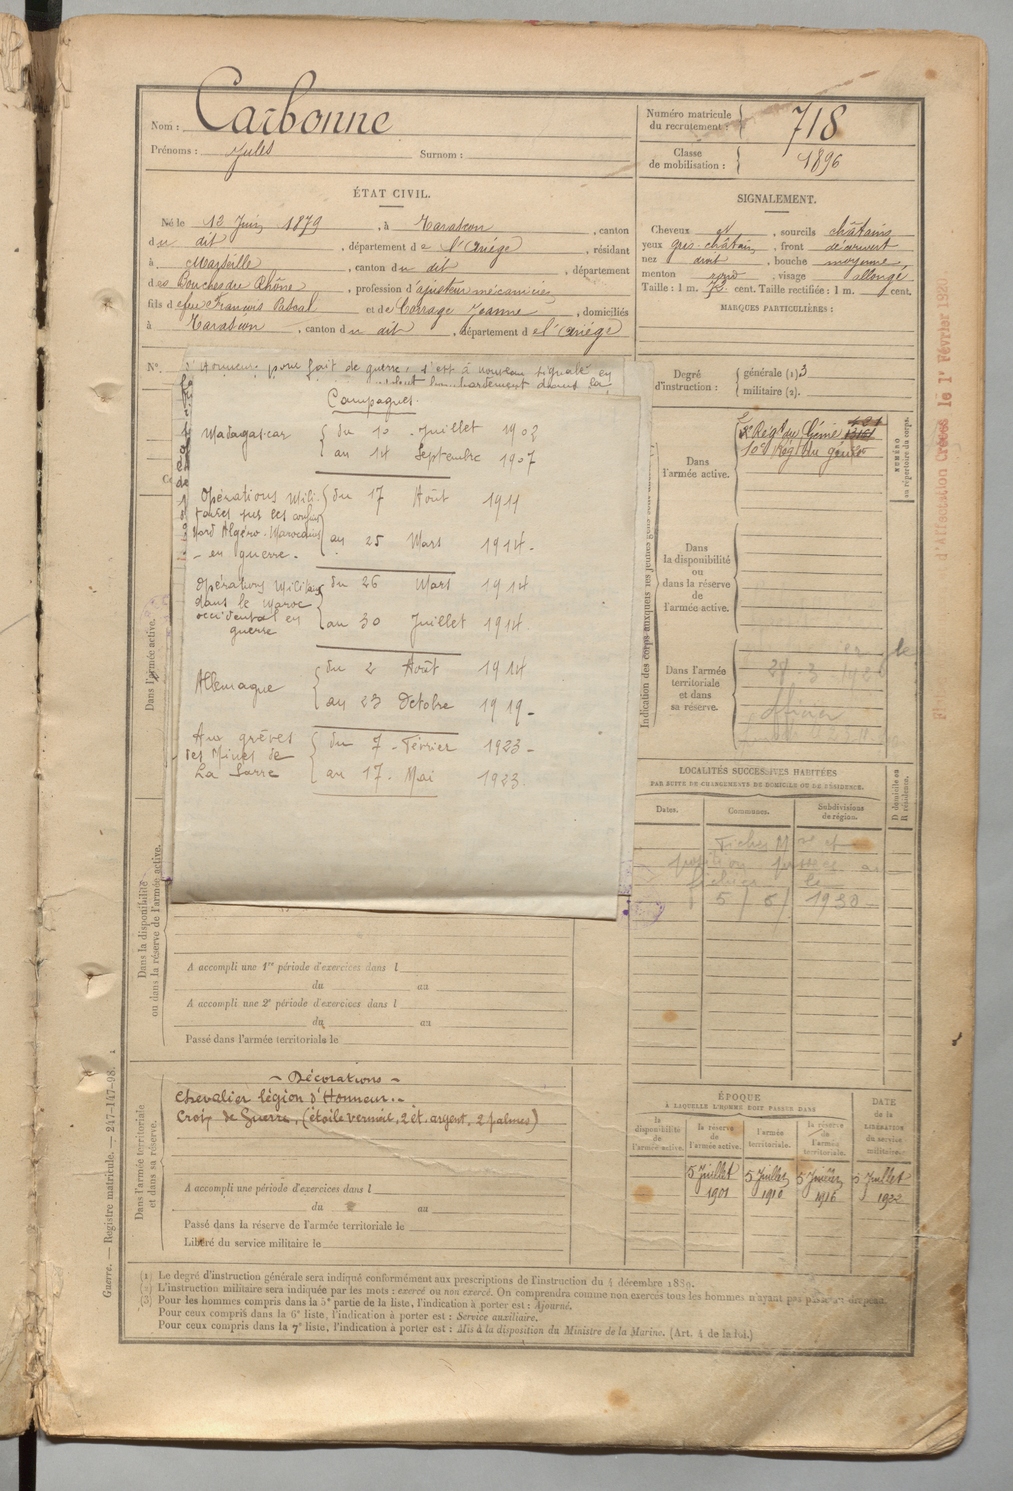 Nom : Carbonne
Prénoms : Jules Surnom :
Numéro matricule du recrutement : 718
Classe de mobilisation : 1896
ÉTAT CIVIL.
Né le 12 Juin 1879, à Tarascon, canton
du dit, département de l'Ariége, résidant
à Marseille, canton du dit, département
des Bouches du Rhône, profession d'ajusteur mécanicien
fils de feu François Pascal et de Jeanne, domiciliés
à Tarascon, canton du dit, département de l'Ariége
SIGNALEMENT.
Cheveux et, sourcils châtains
yeux gris-châtain, front découvert
nez droit, bouche moyenne,
menton rond, visage allongé
Taille : 1 m. 72 cent. Taille rectifiée : 1 m. cent.
MARQUES PARTICULIÈRES :
N°.
d'Honneur, pour fait de guerre, s'est à nouveau signalé en
bombardement dans la
Campagnes.
Madagascar du 10 Juillet 1903
au 14 Septembre 1907
Opérations Mili- du 17 Août 1911
taires sur les confins
Nord Algéro-Marocains au 25 Mars 1914 -
- en guerre -
Opérations Militaires du 26 Mars 1914
dans le Maroc
occidental en au 30 Juillet 1914
guerre
Allemagne du 2 Août 1914
au 23 Octobre 1919 -
Aux grèves du 7 - Février 1923 -
des Mines de
La Sarre au 17 - Mai 1923.
Degré d'instruction : générale (1) 3
militaire (2).
Indication des corps auxquels les jeunes gens sont
Dans l'armée active.
Rég^t du Génie
10e Rég^t du génie
NUMÉRO au répertoire du corps.
Dans la disponibilité ou dans la réserve de l'armée active.
Dans l'armée territoriale et dans sa réserve.
officier
d'Affectation Créées le 1er Février 192
LOCALITÉS SUCCESSIVES HABITÉES
PAR SUITE DE CHANGEMENTS DE DOMICILE OU DE RÉSIDENCE.
Dates. Communes. Subdivisions de région.
D domicile ou R résidence.
Fiches Mre et
position passée au
fichier le
5 / 6 / 1930 -
Dans l'armée active.
Dans la disponibilité ou dans la réserve de l'armée active.
A accompli une 1re période d'exercices dans l
du au
A accompli une 2e période d'exercices dans l
du au
Passé dans l'armée territoriale le
Dans l'armée territoriale et dans sa réserve.
- Décorations -
Chevalier légion d'Honneur. -
Croix de Guerre, (étoile vermeil, 2 ét. argent, 2 palmes)
A accompli une période d'exercices dans l
du au
Passé dans la réserve de l'armée territoriale le
Libéré du service militaire le
ÉPOQUE
A LAQUELLE L'HOMME DOIT PASSER DANS
la disponibilité de l'armée active. la réserve de l'armée active. l'armée territoriale. la réserve de l'armée territoriale.
DATE de la LIBÉRATION du service militaire.
5 Juillet 1901 5 Juillet 1910 5 Juillet 1916 5 Juillet 1922
(1) Le degré d'instruction générale sera indiqué conformément aux prescriptions de l'instruction du 4 décembre 1889.
(2) L'instruction militaire sera indiquée par les mots : exercé ou non exercé. On comprendra comme non exercés tous les hommes n'ayant pas passé au drapeau.
(3) Pour les hommes compris dans la 5e partie de la liste, l'indication à porter est : Ajourné.
Pour ceux compris dans la 6e liste, l'indication à porter est : Service auxiliaire.
Pour ceux compris dans la 7e liste, l'indication à porter est : Mis à la disposition du Ministre de la Marine. (Art. 4 de la loi.)
Guerre. — Registre matricule. — 247-147-98.